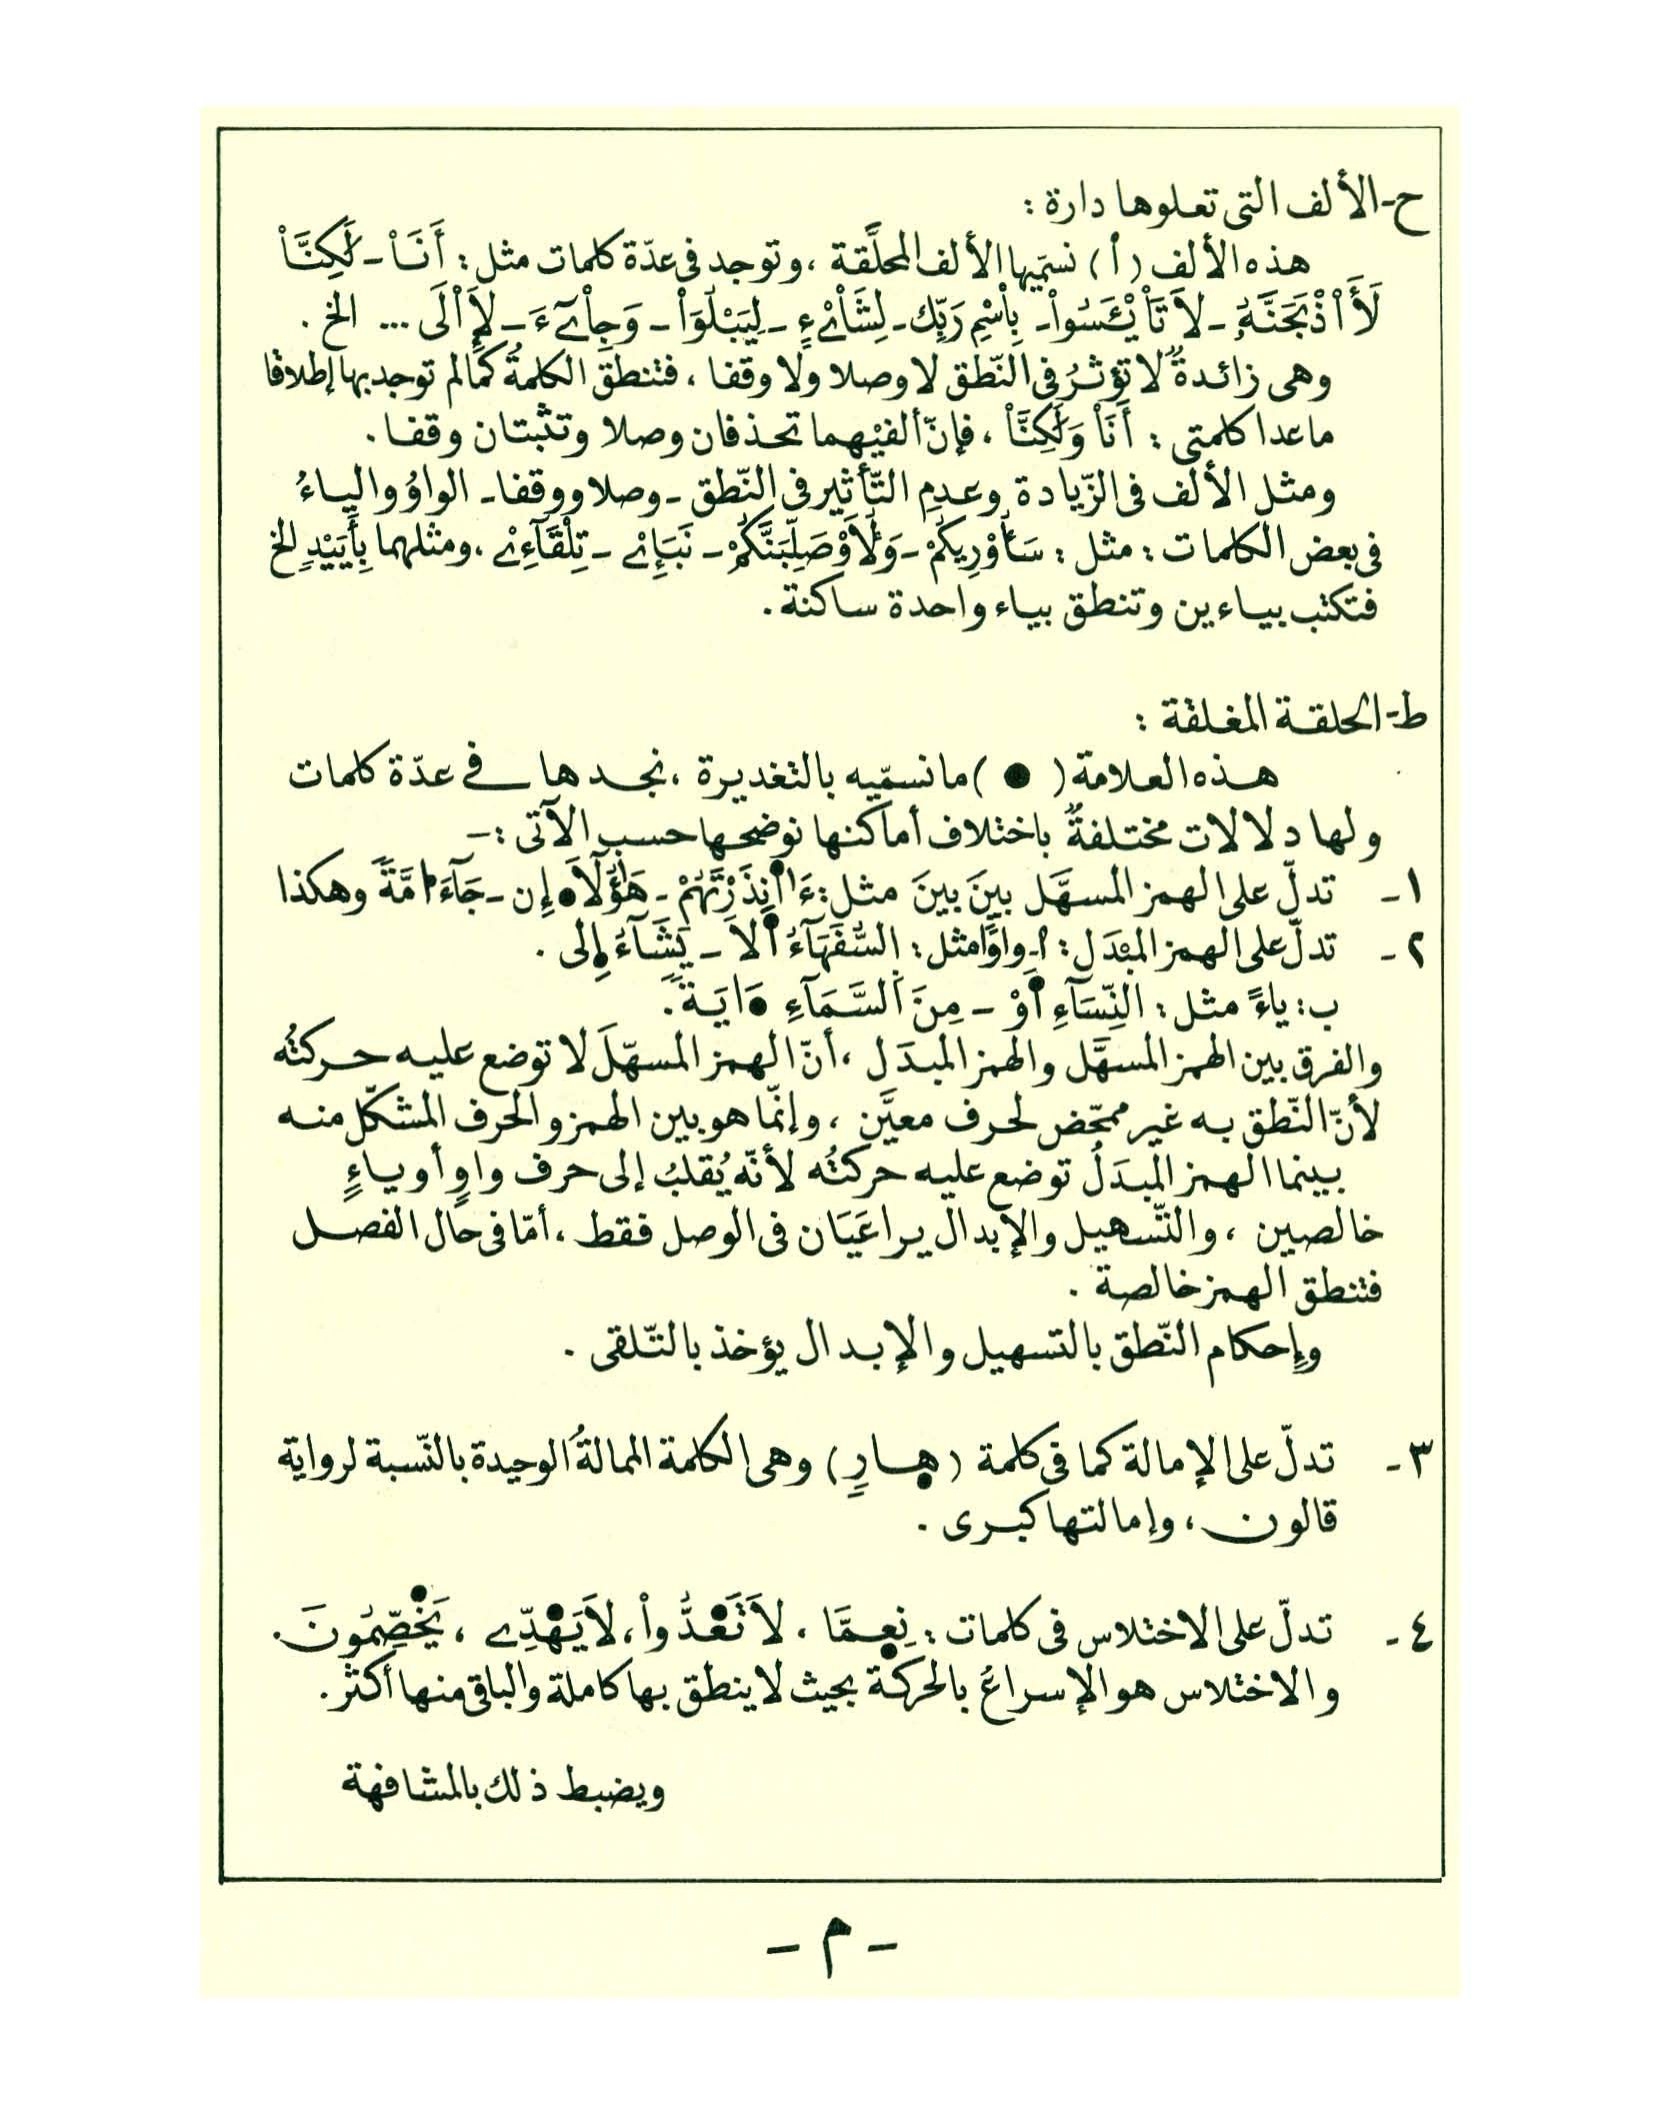 ح- الألف التى تعلوها دارة :
هذه الألف (اْ) نسمّيها الألف المحلَّقة ، وتوجد فى عدّة كلمات مثل : أَنَاْ - لَّٰكِنَّاْ
لَأَاْذْبَحَنَّهُۥٓ - لاَ تَاْيْـَٔسُواْ - بِاْسْمِ رَبِّكَ - لِشَاْےْءٍ - لِّيَبْلُوَاْ - وَجِاْےٓءَ - لَإِاْلَى ... الخ .
وهى زائدةٌ لا تؤثرُ فى النّطق لا وصلا ولا وقفا ، فتنطق الكلمةُ كما لم توجد بها إطلاقا
ماعدا كلمتى : أَنَاْ وَلَّٰكِنَّاْ ، فإنّ ألفيْهما تحذفان وصلا وتثبتان وقفا .
ومثل الألف فى الزّيادة وعدمِ التّأثير فى النّطق - وصلا ووقفا - الواوُ والياءُ
فى بعض الكلمات : مثل : سَأُوْرِيكُمْ - وَلَأُوْصَلِّبَنَّكُمْ - نَبَإِےْ - تِلْقَآءِےْ ، ومثلهما بِأَيَيْدٍ الخ
فتكتب بياءين وتنطق بياء واحدة ساكنة .
ط- الحلقة المغلقة :
هذه العلامة ( ● ) ما نسمّيه بالتغديرة ، نجدها فى عدّة كلمات
ولها دلالات مختلفةٌ باختلاف أماكنها نوضحها حسب الآتى : -
١ - تدلّ على الهمز المسهَّل بينَ بينَ مثل : ءَا۬نذَرْتَهُمْ - هَٰٓؤُلَآ●إِن - جَآءَ ا●مَّةً وهكذا
٢ - تدلّ على الهمز المبْدَل : أ- واوًا مثل : اُلسُّفَهَآءُ ا●َلاَ - يَشَآءُ ا●ِلى .
ب : ياءً مثل : النِّسَآءِ ا●َوْ - مِنَ اَلسَّمَآءِ ●َايَةً .
والفرق بين الهمز المسهَّل والهمز المبدَل ، أنّ الهمز المسهّلَ لا توضع عليه حركتُه
لأنّ النّطق به غير ممحّض لحرف معيَّن ، وإنّما هو بين الهمز والحرف المشكّل منه
بينما الهمز المبدَلُ توضع عليه حركتُه لأنّه يُقلبُ إلى حرف واوٍ أو ياءٍ
خالصين ، والتّسهيل والإبدال يراعَيَان فى الوصل فقط ، أمّا فى حال الفصل
فتنطق الهمز خالصة .
وإحكام النّطق بالتسهيل والإبدال يؤخذ بالتّلقى .
٣ - تدلّ على الإمالة كما فى كلمة (ه●ـارٍ) وهى الكلمة الممالةُ الوحيدة بالنّسبة لرواية
قالون ، وإمالتها كبرى .
٤ - تدلّ على الاختلاس فى كلمات : نِع●ـمَّا ، لاَ تَع●ْدُّواْ ، لاَ يَه●ْدِّے ، يَخ●ْصِّمُونَ .
والاختلاس هو الإسراعُ بالحركة بحيث لا ينطق بها كاملة والباقى منها أكثر .
ويضبط ذلك بالمشافهة
- م -